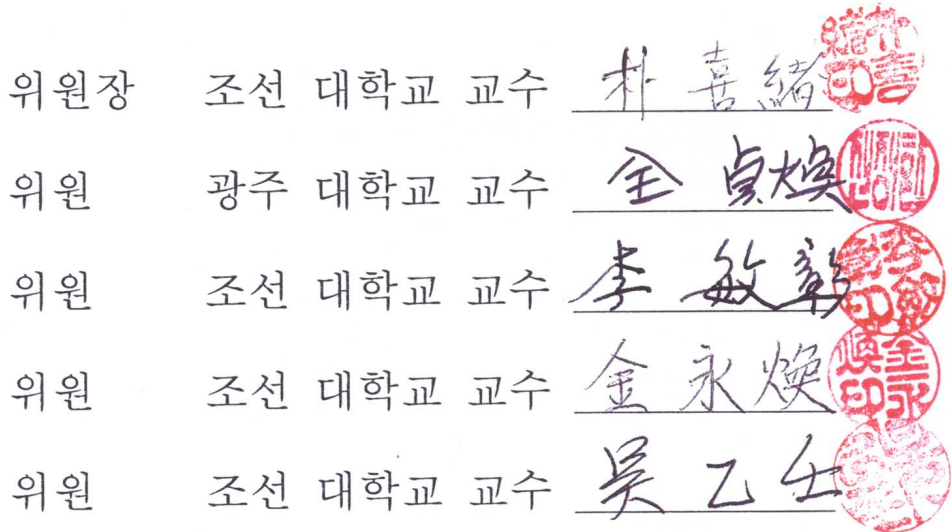 위원장 조선 대학교 교수 朴喜緖
위원 광주 대학교 교수 全貞煥
위원 조선 대학교 교수 李敏彰
위원 조선 대학교 교수 金永煥
위원 조선 대학교 교수 吳乙壬